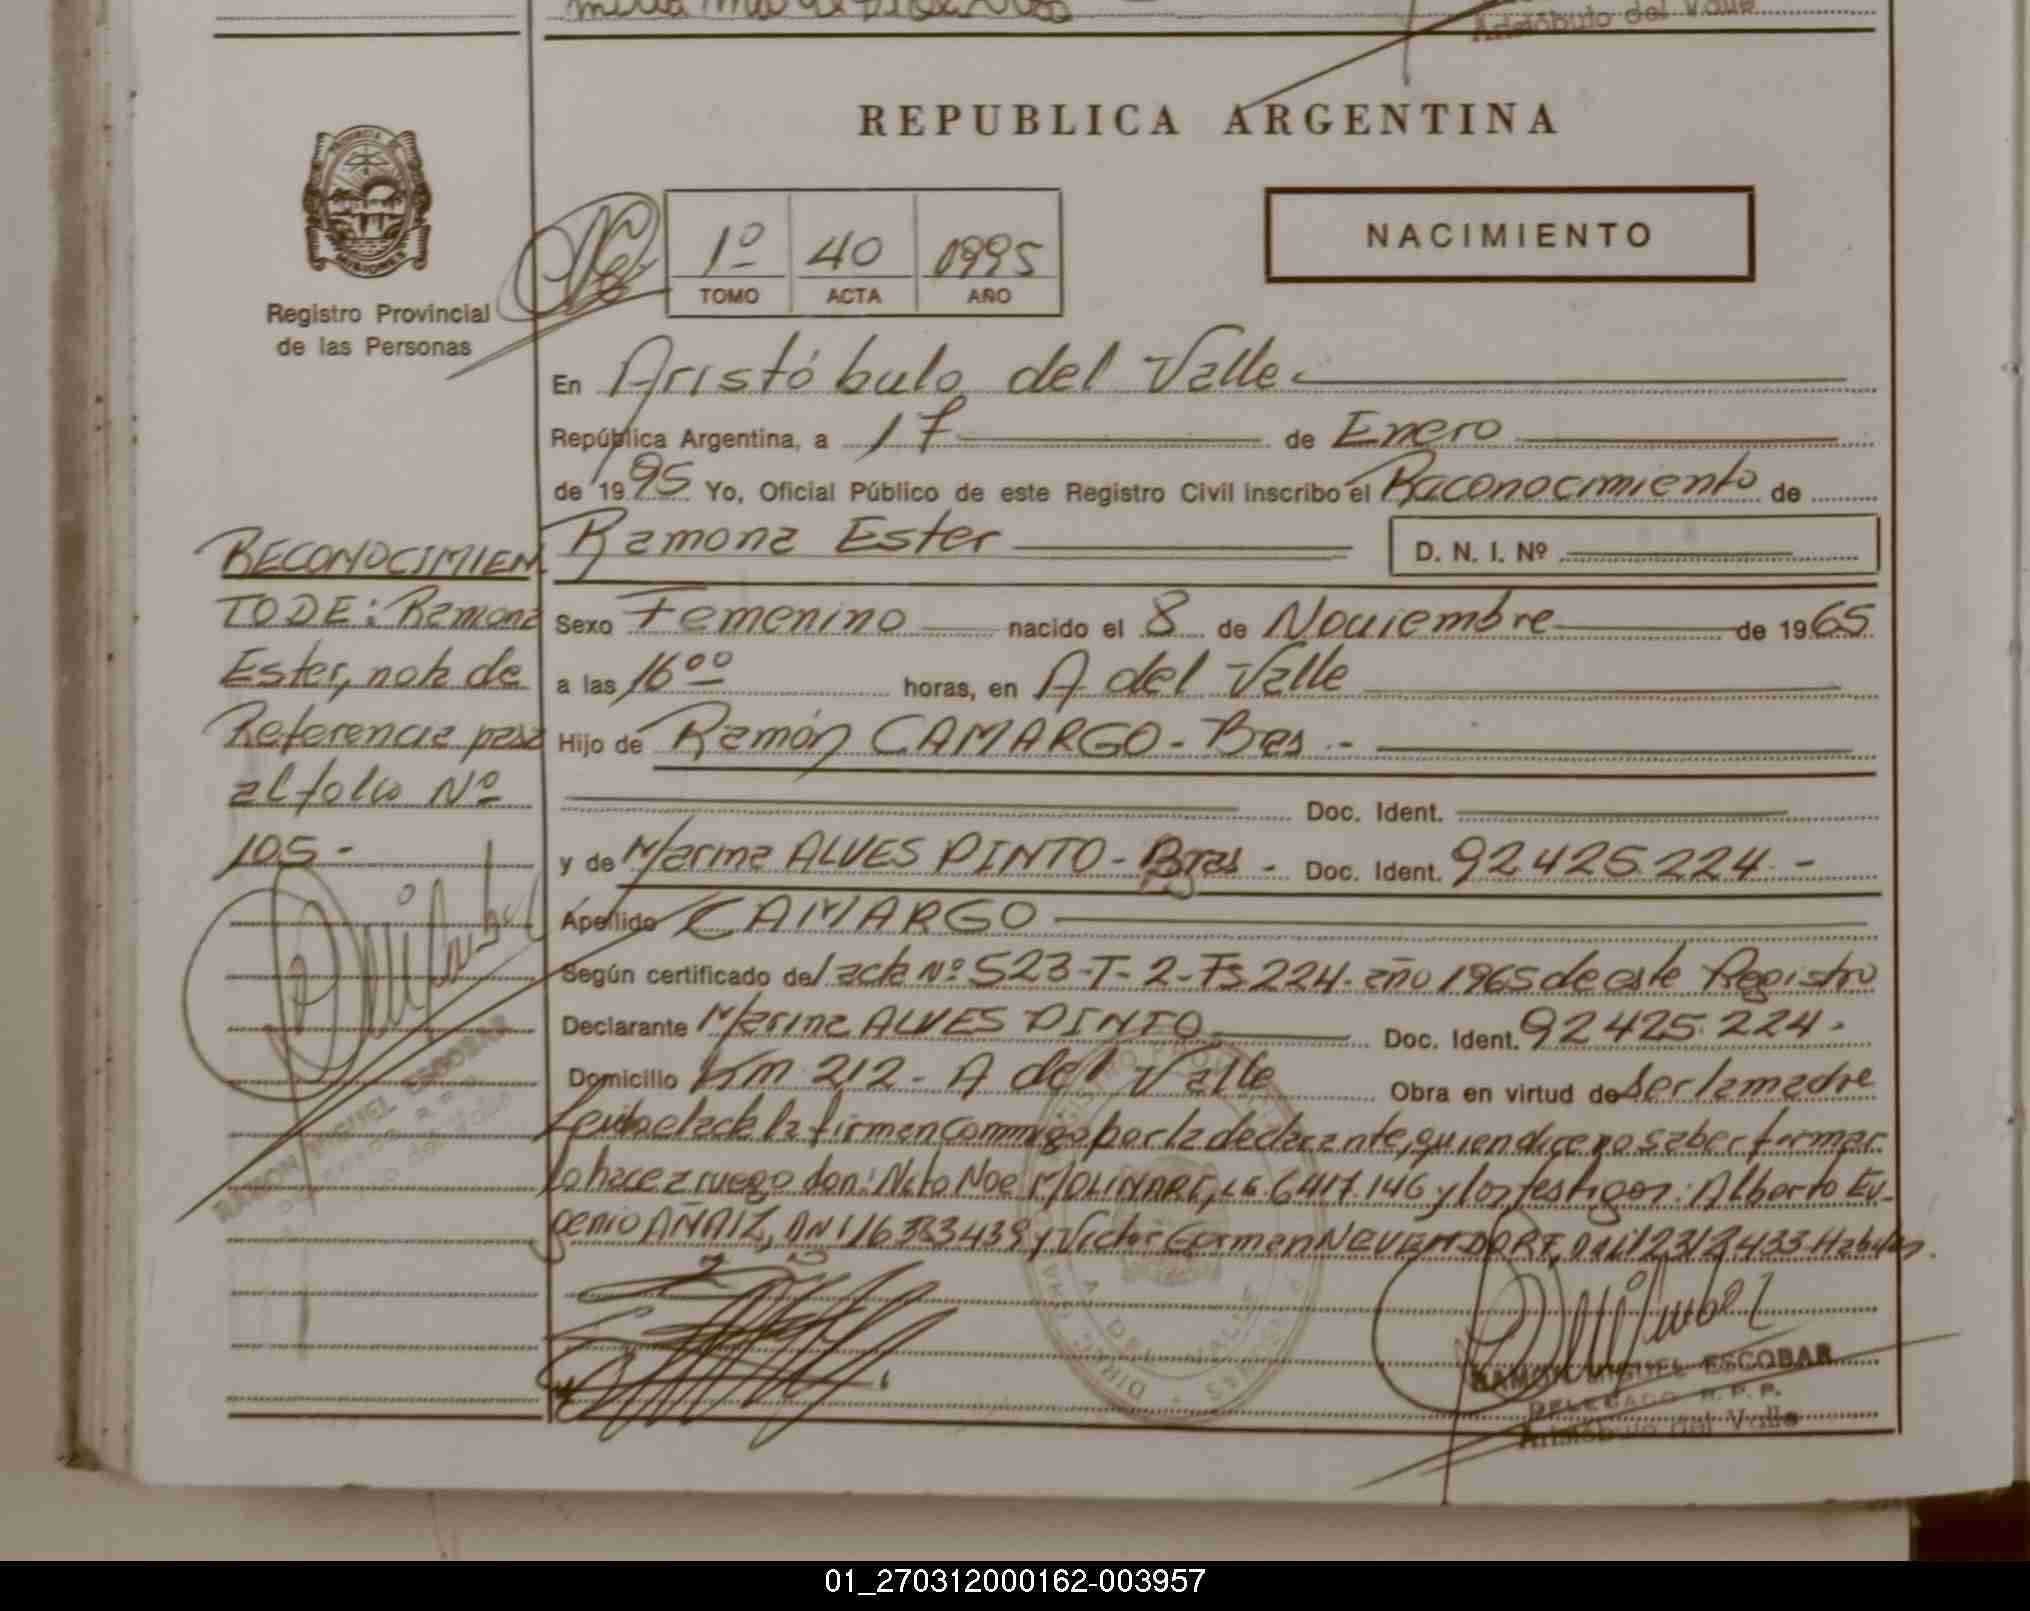 Aristóbulo del Valle
REPUBLICA ARGENTINA
PROVINCIA
MISIONES
Registro Provincial
de las Personas
1º 40 1995
TOMO ACTA AÑO
NACIMIENTO
En Aristóbulo del Valle
República Argentina, a 17 de Enero
de 1995 Yo, Oficial Público de este Registro Civil inscribo el Reconocimiento de
Ramona Ester D. N. I. Nº
Sexo Femenino nacido el 8 de Noviembre de 1965
a las 16⁰⁰ horas, en A del Valle
Hijo de Ramón CAMARGO - Bras -
Doc. Ident.
y de Marina ALVES PINTO - Bras - Doc. Ident. 92425224 -
Apellido CAMARGO
Según certificado del acta Nº 523-T-2-Fs 224- año 1965 de este Registro
Declarante Marina ALVES PINTO Doc. Ident. 92425224-
Domicilio Km 212 - A del Valle Obra en virtud de Ser la madre
Leida el acta la firman conmigo por la declarante, quien dice no saber firmar
lo hace a ruego don: Noe MOLINARI, LE 6417.146 y los testigos: Alberto Eu-
genio AÑAIZ, DNI 16383439 y Victor German NEUENDORF, DNI 12312433 Habiles.
RECONOCIMIEN
TO DE: Ramona
Ester, nota de
Referencia pasa
al folio Nº
105-
RAMON MIGUEL ESCOBAR
A DEL VALLE
RAMON MIGUEL ESCOBAR
DELEGADO R. P. P.
Aristóbulo del Valle
01_270312000162-003957